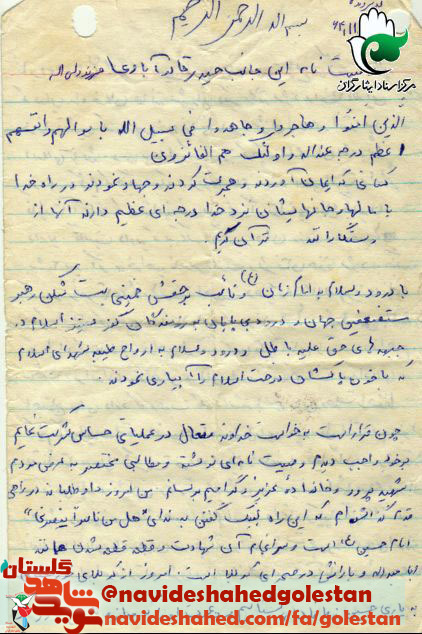 بسم الله الرحمن الرحیم
مرکز اسناد ایثارگران
نامه این جانب حیدر فرزند
الذین آمنوا و هاجروا و جاهدوا فی سبیل الله باموالهم وانفسهم
اعظم درجه عندالله و اولئک هم الفائزون
کسانی که ایمان آوردند و هجرت کردند و جهاد نمودند در راه خدا
با مالها و جانهایشان نزد خدا درجه ای عظیم دارند آنها از
رستگارانند قرآن کریم.
با درود و سلام به امام زمان (عج) و نائب بر حقش خمینی بت شکن رهبر
مستضعفین جهان و درود بی پایان به رزمندگان اسلام در
جبهه های حق علیه باطل و درود و سلام به ارواح طیبه شهدای اسلام
که با خون پاکشان درخت اسلام را آبیاری نمودند.
چون قرار است به خواست خداوند متعال در عملیاتی حساس شرکت نمایم
بر خود واجب دیدم وصیت نامه ای نوشته و مطالبی مختصر به عرض مردم
شهید پرور و خانواده عزیز و گرامیم برسانم. من امروز داوطلبانه در راهی
قدم گذاشته ام که این راه لبیک گفتن به ندای "هل من ناصر ینصرنی"
امام حسین (ع) است و سرانجام آن شهادت و قطعه قطعه شدن
گلستان
نوید شاهد
@navideshahedgolestan
navideshahed.com/fa/golestan